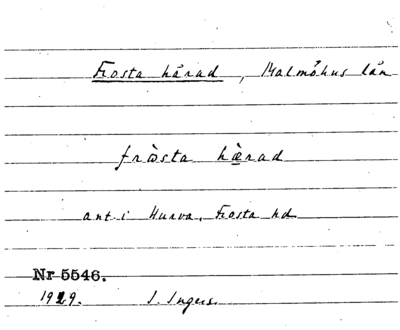 Frosta härad, Malmöhus län
frò̤sta hæ̀rad
ant. i Hurva, Frosta hd
Nr 5546.
1929. I. Ingers.